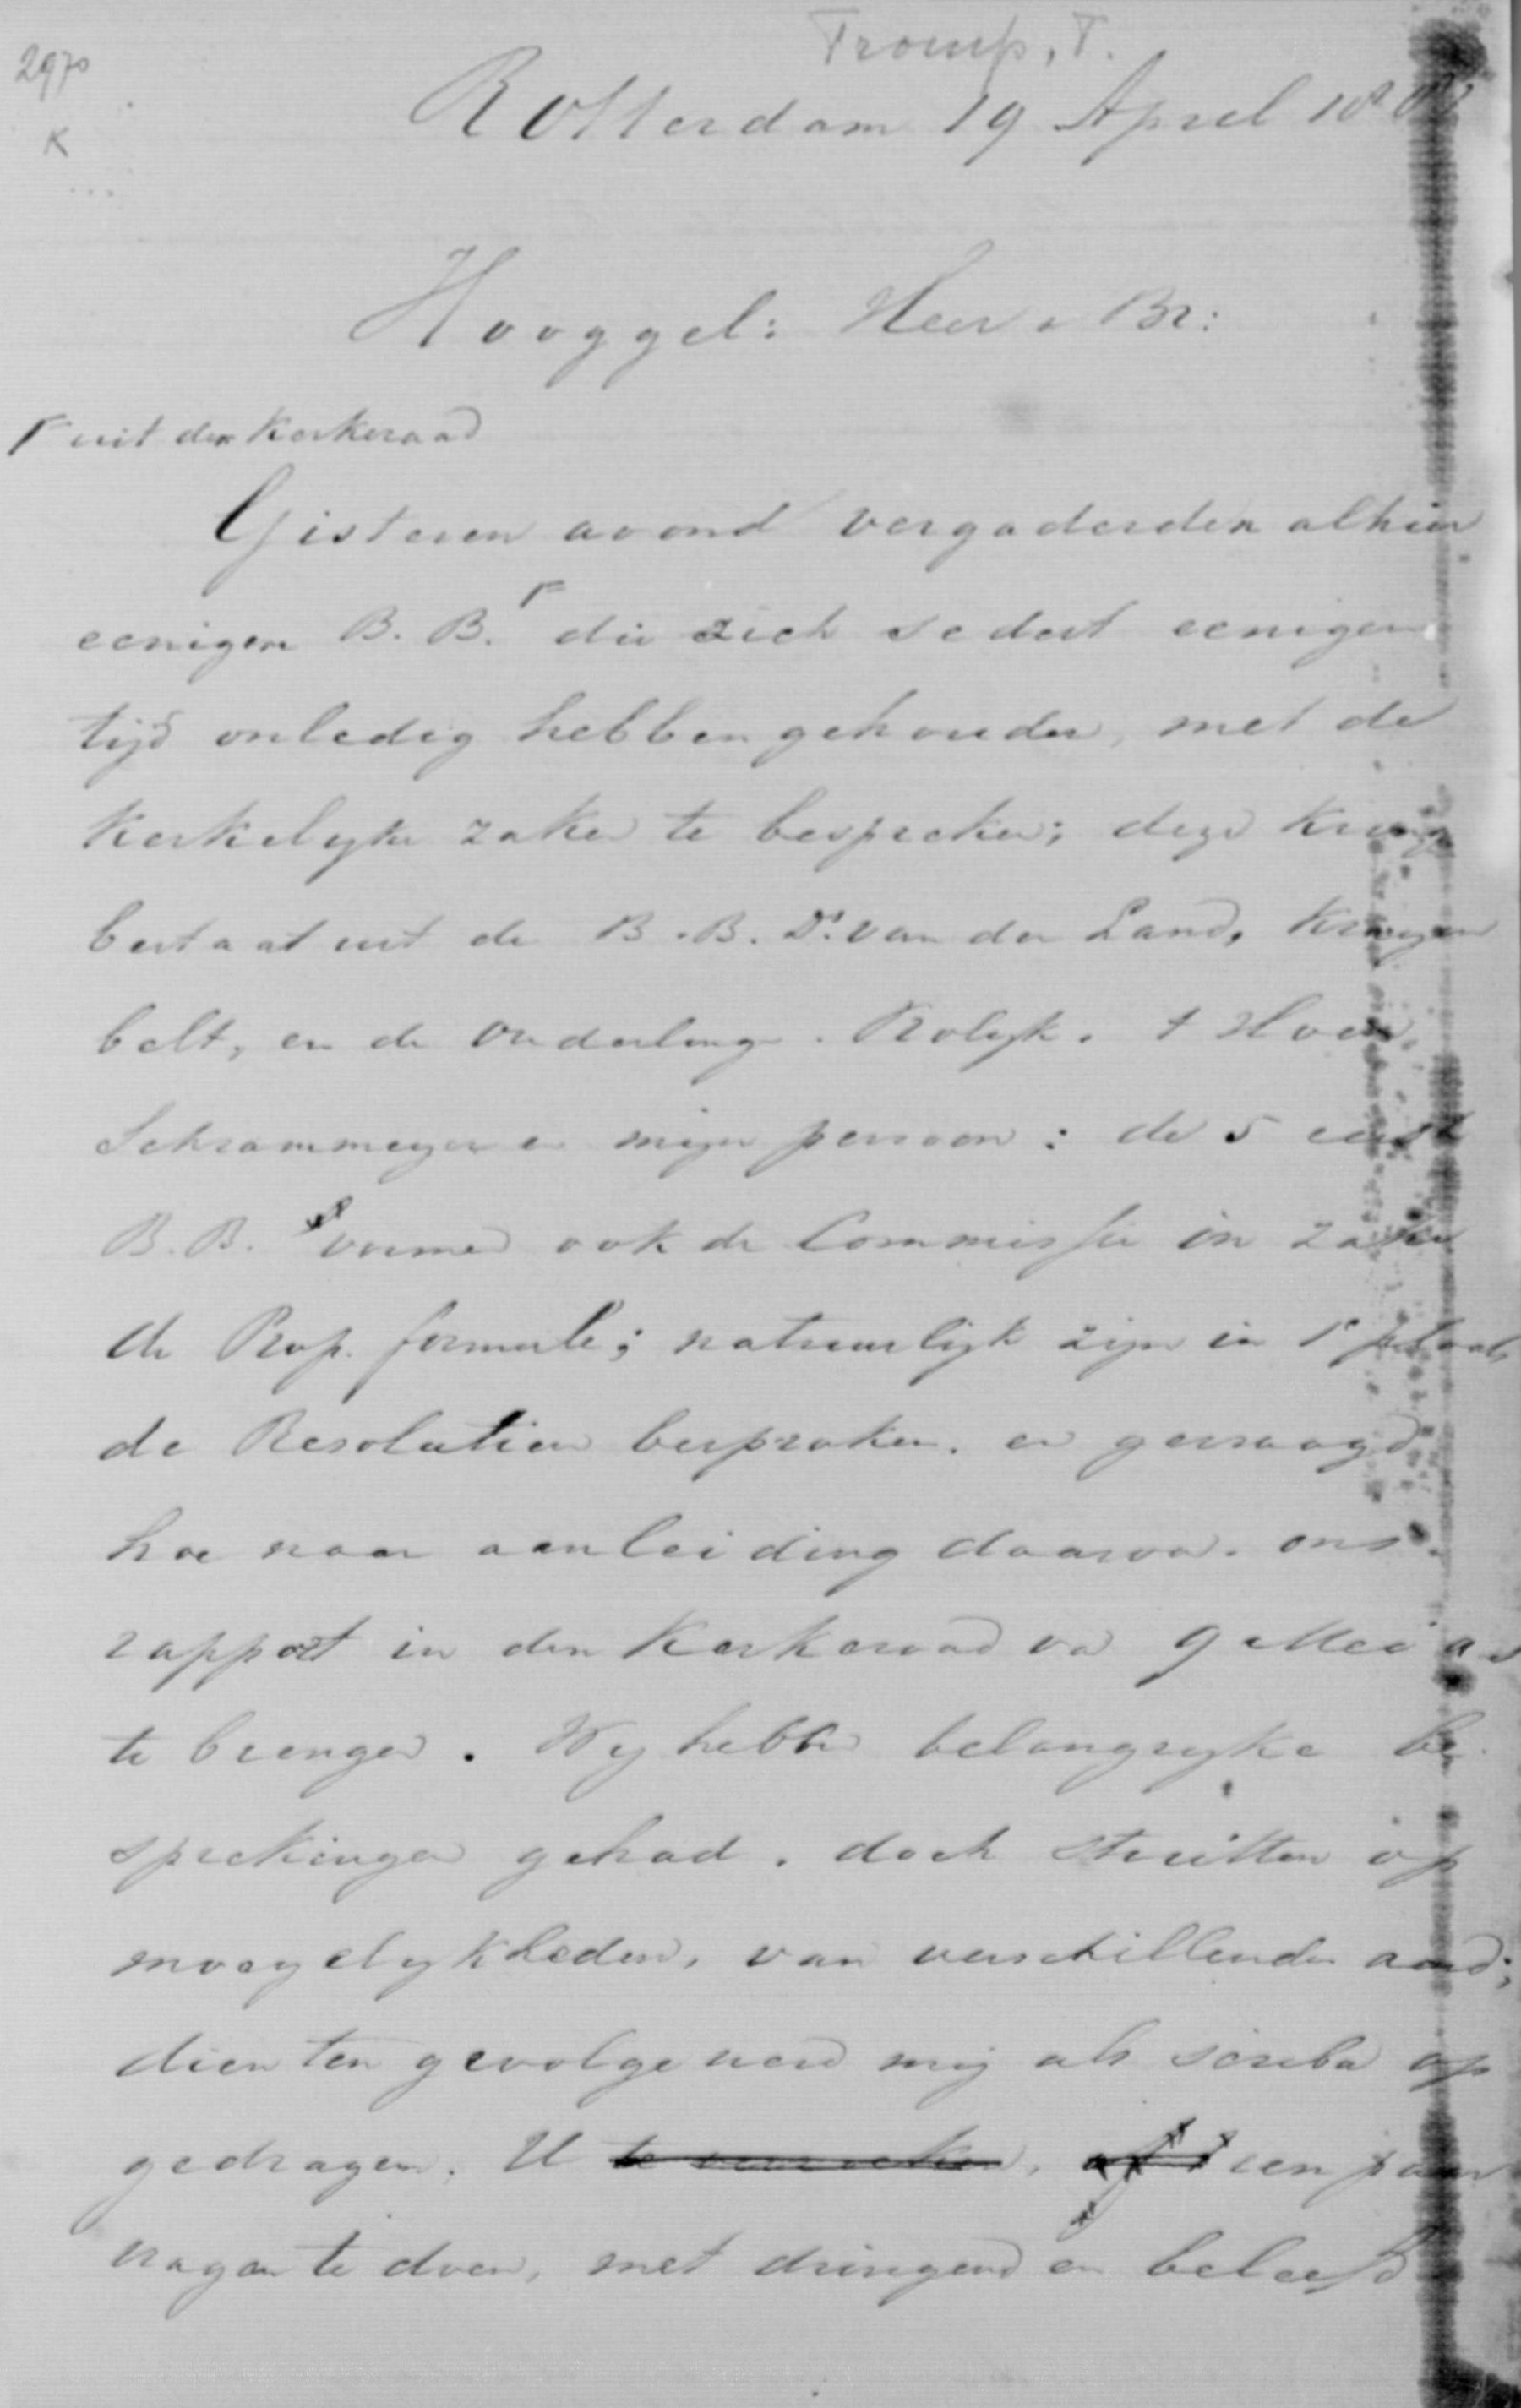 Tromp, T.
2970
K
Rotterdam 19 April 18
Hooggel: Heer & Br:
Γ uit den Kerkeraad
Gisteren avond vergaderden alhier
eenigen B. B. Γ die zich sedert eenigen
tijd onledig hebben gehouden, met de
Kerkelyke zaken te bespreken; deze Kring
bestaat uit de B. B. Ds. van der Land, Kruyen
belt, en de Ouderlingen. Kolyk. t Hoen,
Schrammeyer en mijn persoon: de 5 eerste
B. B. vormen ook de Commissie in zake
de Prop. formule; natuurlijk zijn in 1e plaats
de Resolutien besproken. en gevraagd
hoe naar aanleiding daarvan. ons
rapport in den Kerkeraad van 9 Mei as
te brengen. Wy hebben belangryke be
sprekingen gehad. doch stuitten op
moeyelykheden, van verschillenden aard;
dien ten gevolge werd mij als scriba op
gedragen. U een paar
vragen te doen, met dringend en beleefd